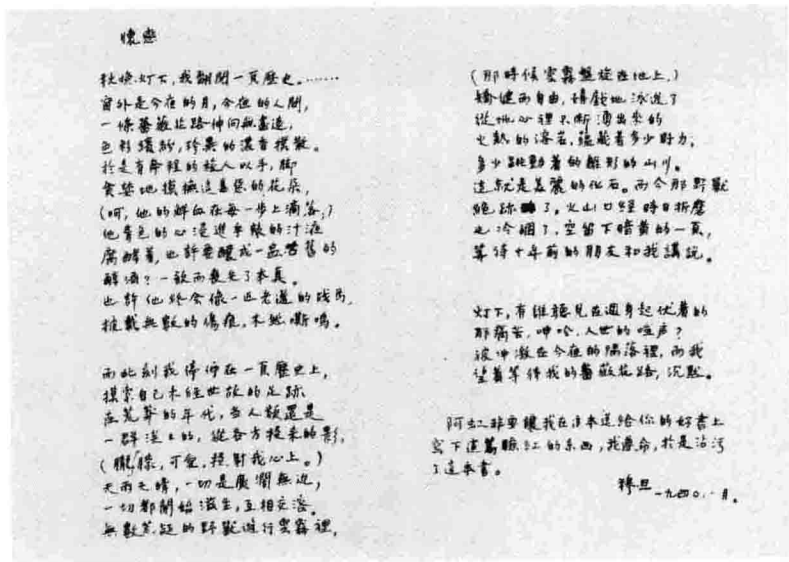 懷戀
枝燦灯下,我翻閱一頁歷史。……
窗外是今夜的月,今夜的人間,
一條薔薇花路伸向無盡遠,
色彩繽紛,珍異的濃香撲散。
於是有奔程的旅人以手,腳
貪婪地撫摸這毒惡的花朵,
(呵,他的鮮血在每一步上滴落!)
他青色的心浸進辛辣的汁液
腐酵着,也許要釀成一盅古舊的
醇酒?一飲而喪失了本真。
也許他終于像一匹老邁的戰馬,
披戴無數的傷痕,木然嘶鳴。
而此刻我停佇在一頁歷史上,
摸索自己未經世故的足跡
在荒莽的年代,當人類還是
一群淡淡的,從各方投來的影,
(朦朧,可愛,投對我心上。)
天雨天晴,一切是廣闊無邊,
一切都開始滋生,互相交溶。
無數荒誕的野獸遊行雲霧裡,
(那時候雲霧盤旋在地上,)
矯健而自由,嬉戲地泳進了
從地心裡不斷湧出來的
火熱的溶岩,蘊藏着多少野力,
多少跳動着的雛形的山川。
這就是美麗的化石。而今那野獸
絕跡了,火山口經時日折磨
也冷涸了,空留下暗黃的一頁,
等待十年前的朋友和我講說。
灯下,有誰聽見在週身起伏着的
那痛苦,呻吟,人世的喧声?
被沖激在今夜的隅落裡,而我
望着等待我的薔薇花路,沉默。
阿虹非要讓我在這本送給你的好書上
寫下這篇臉紅的东西,我遵命,於是沾污
了這本書。
穆旦
一九四〇,一月。